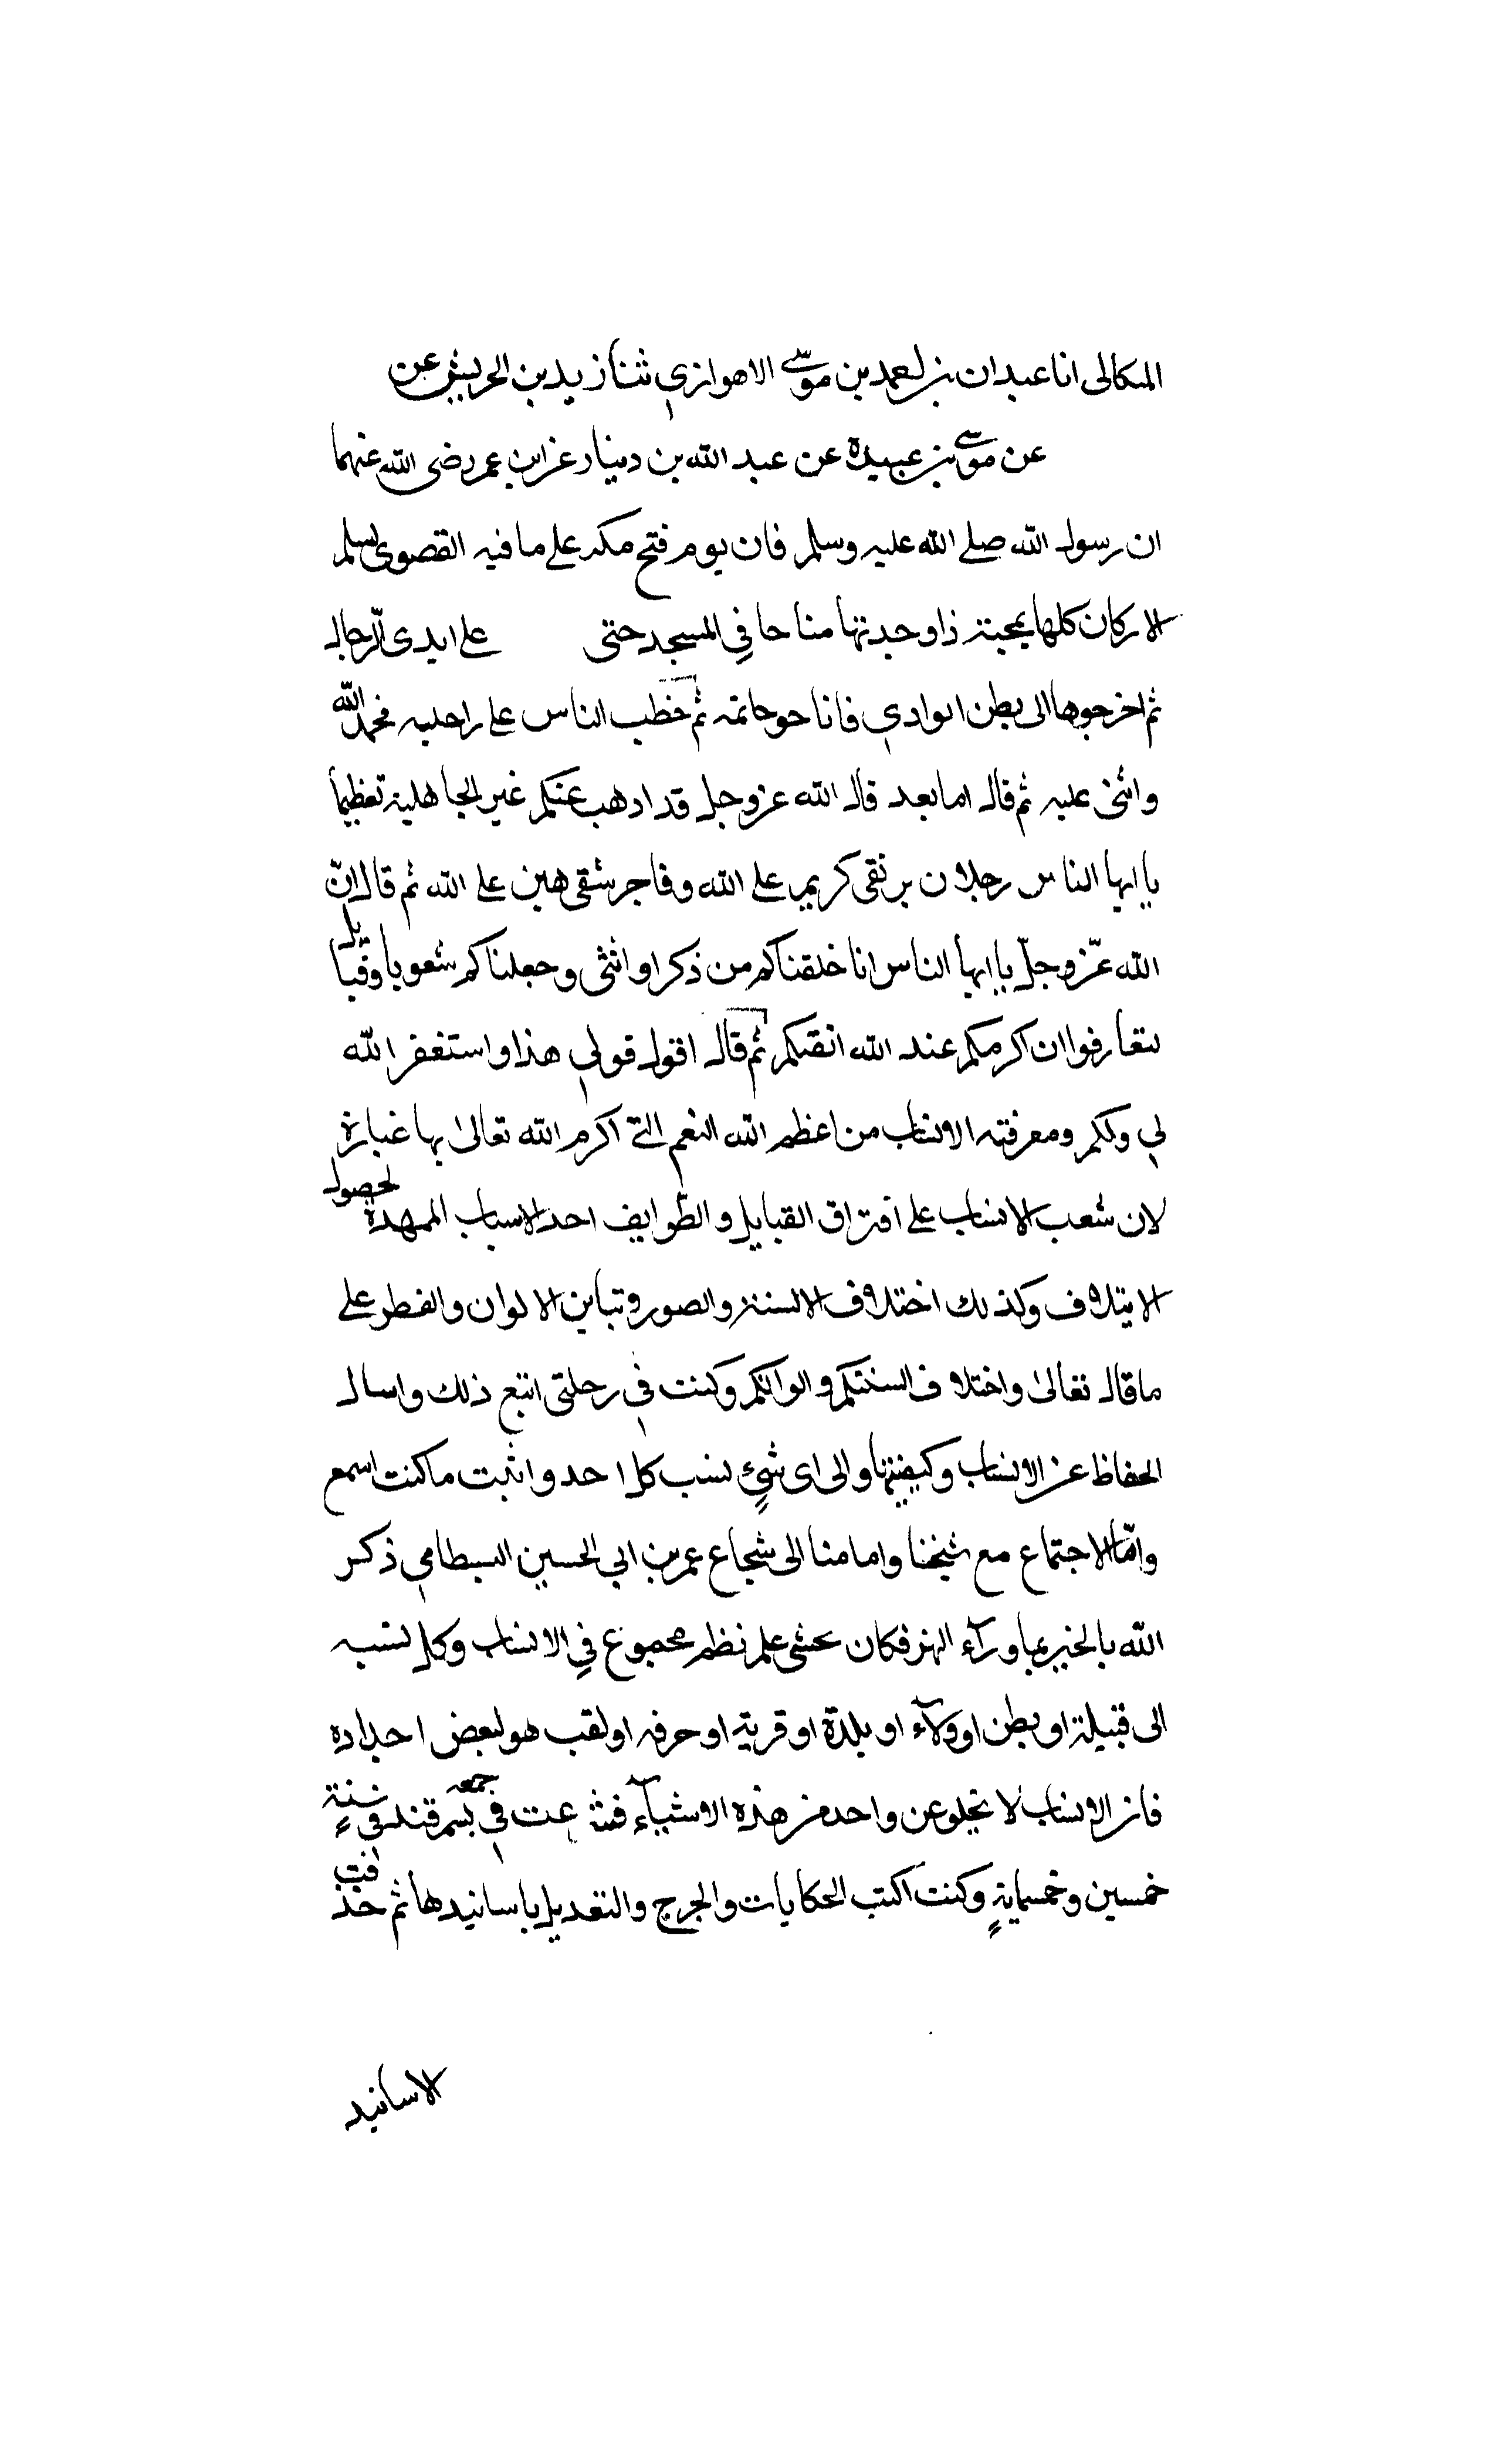 المكالى انا عبدان بن احمد بن موسى الاهوازي ثنا زيد بن الحريش عن
عن موسى بن عبيدة عن عبد الله بن دينار عن ابن عمر رضى الله عنهما
ان رسول الله صلى الله عليه وسلم فان يوم فتح مكه على مافيه القصوى لسلم
الاركان كلها بمحبنة ذاوحدتها مناحا في المسجد حتى على ايدى الرجال
ثم اخرجوها الى بطن الوادي فاناحوحاتمه ثم خطب الناس على راحليه فحمد الله
واثنى عليه ثم قال اما بعد قال الله عزوجل قد ادهب عنكم غير الجاهلية تعظيما
يا ايها الناس رجلان بر نقى كريم على الله وفاجر شقى هين على الله ثم قال انّ
الله عزّ وجلّ يا ايها الناس انا خلقناكم من ذكر او انثى وجعلناكم شعوبا وقبايل
لتعارفوا ان اكرمكم عند الله اتقيكم ثم قال اقول قولي هذا واستغفر الله
لي ولكم ومعرفته الانساب من اعظم الله النعم التى اكرم الله تعالىٰ بها عبارة
لان شعب الانساب على افتراق القبايل والطّوايف احد الاسباب الممهدة لحصول
الايتلاف وكذلك اختلاف الالسنة والصور وتباين الالوان والفطر على
ماقال تعالىٰ واختلاف السنتكم والوانكم وكنت في رحلتى اتبع ذلك واسال
الحفاظ عن الانساب وكيفيتها والى اى شيءٍ نسب كل احد واثبت ماكنت اسمع
وامّا الاجتماع مع شيخنا وامامنا الى شجاع عمر بن ابي الحسين البسطامي ذكر
الله بالخير بما ورآء النهر فكان يحثنى على نظم مجموع في الانساب وكل نسبه
الى قبيلة او بطن او ولآء او بلدة او قرية او حرفه او لقب هو لبعض اجداده
فان الانساب لا تخلو عن واحد من هذه الاشيآء فشرعت في جمعه بسمرقند فى سنة
خمسين وخمسمايةٍ وكنت اكتب الحكايات والجرح والتعديل باسانيدها ثم حذفت
الاسانيد